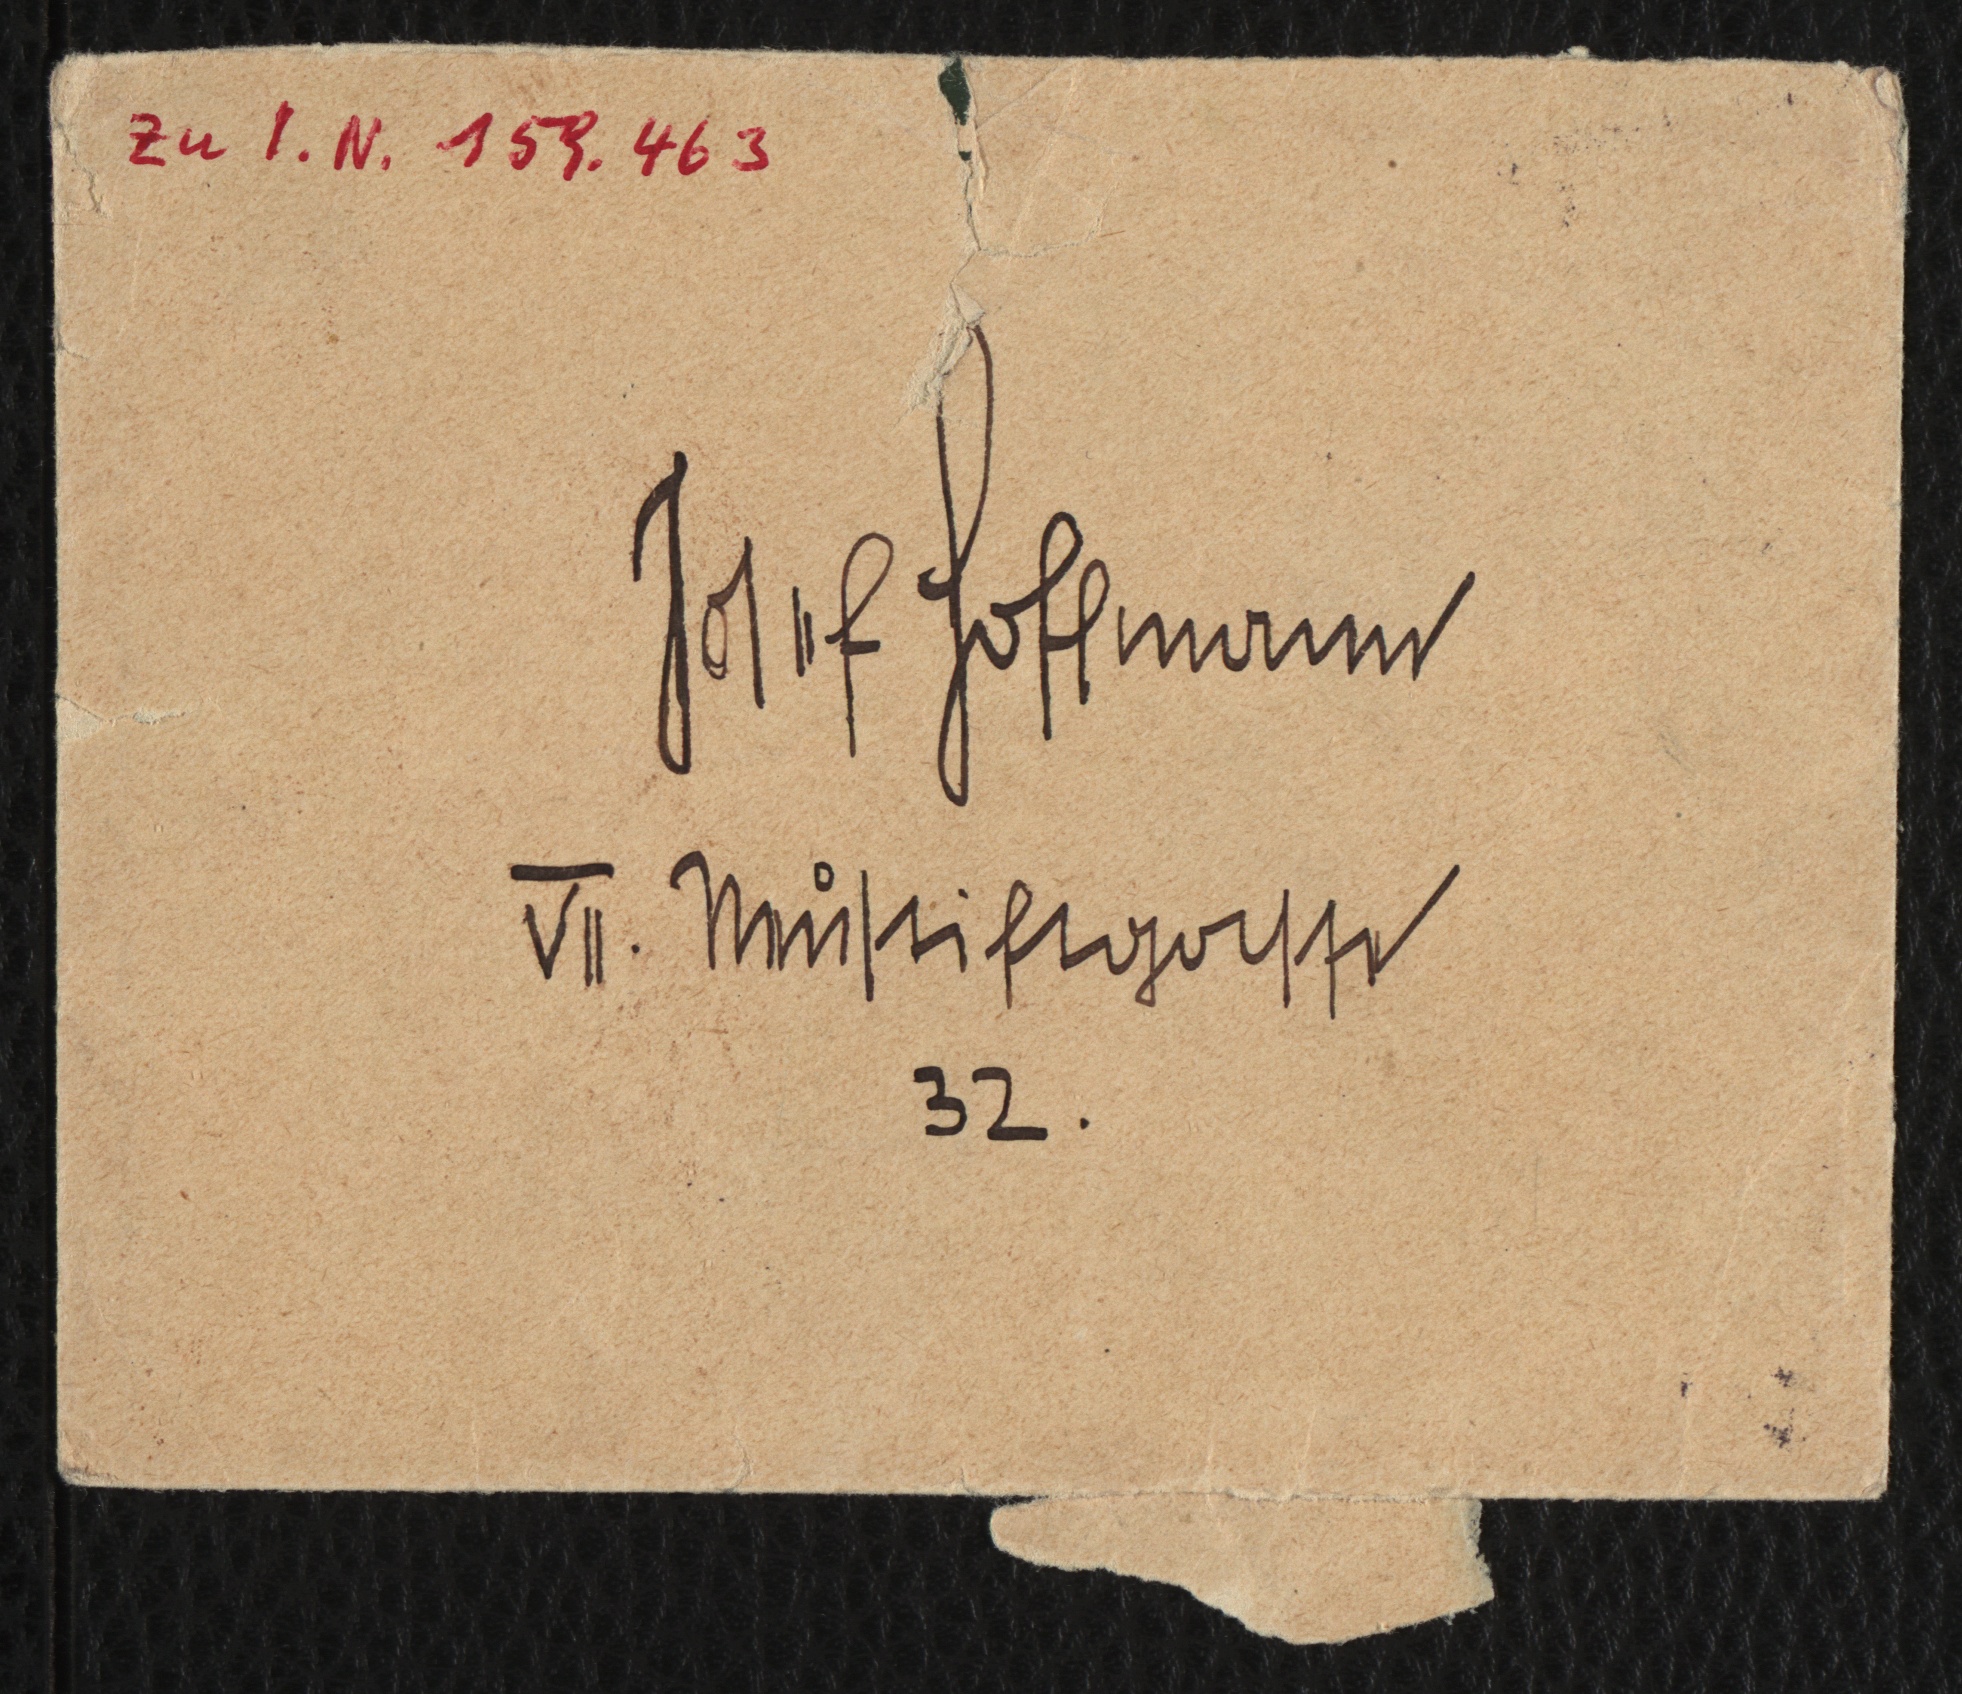 Zu I. N. 159.463
Josef Hoffmann
VII. Neustiftgasse
32.